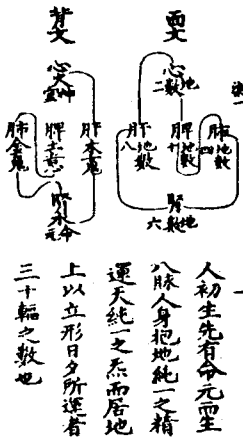 面文
心地數二
肺地數四
脾地數十
肝地數八
腎地數六
背文
心火
肝木鬼
脾土意
肺金鬼
腎水命元
人初生先有命元而生
八脉人身把地純一之精
運天純一之炁而居地
上以立形日夕所運者
三十輻之數也